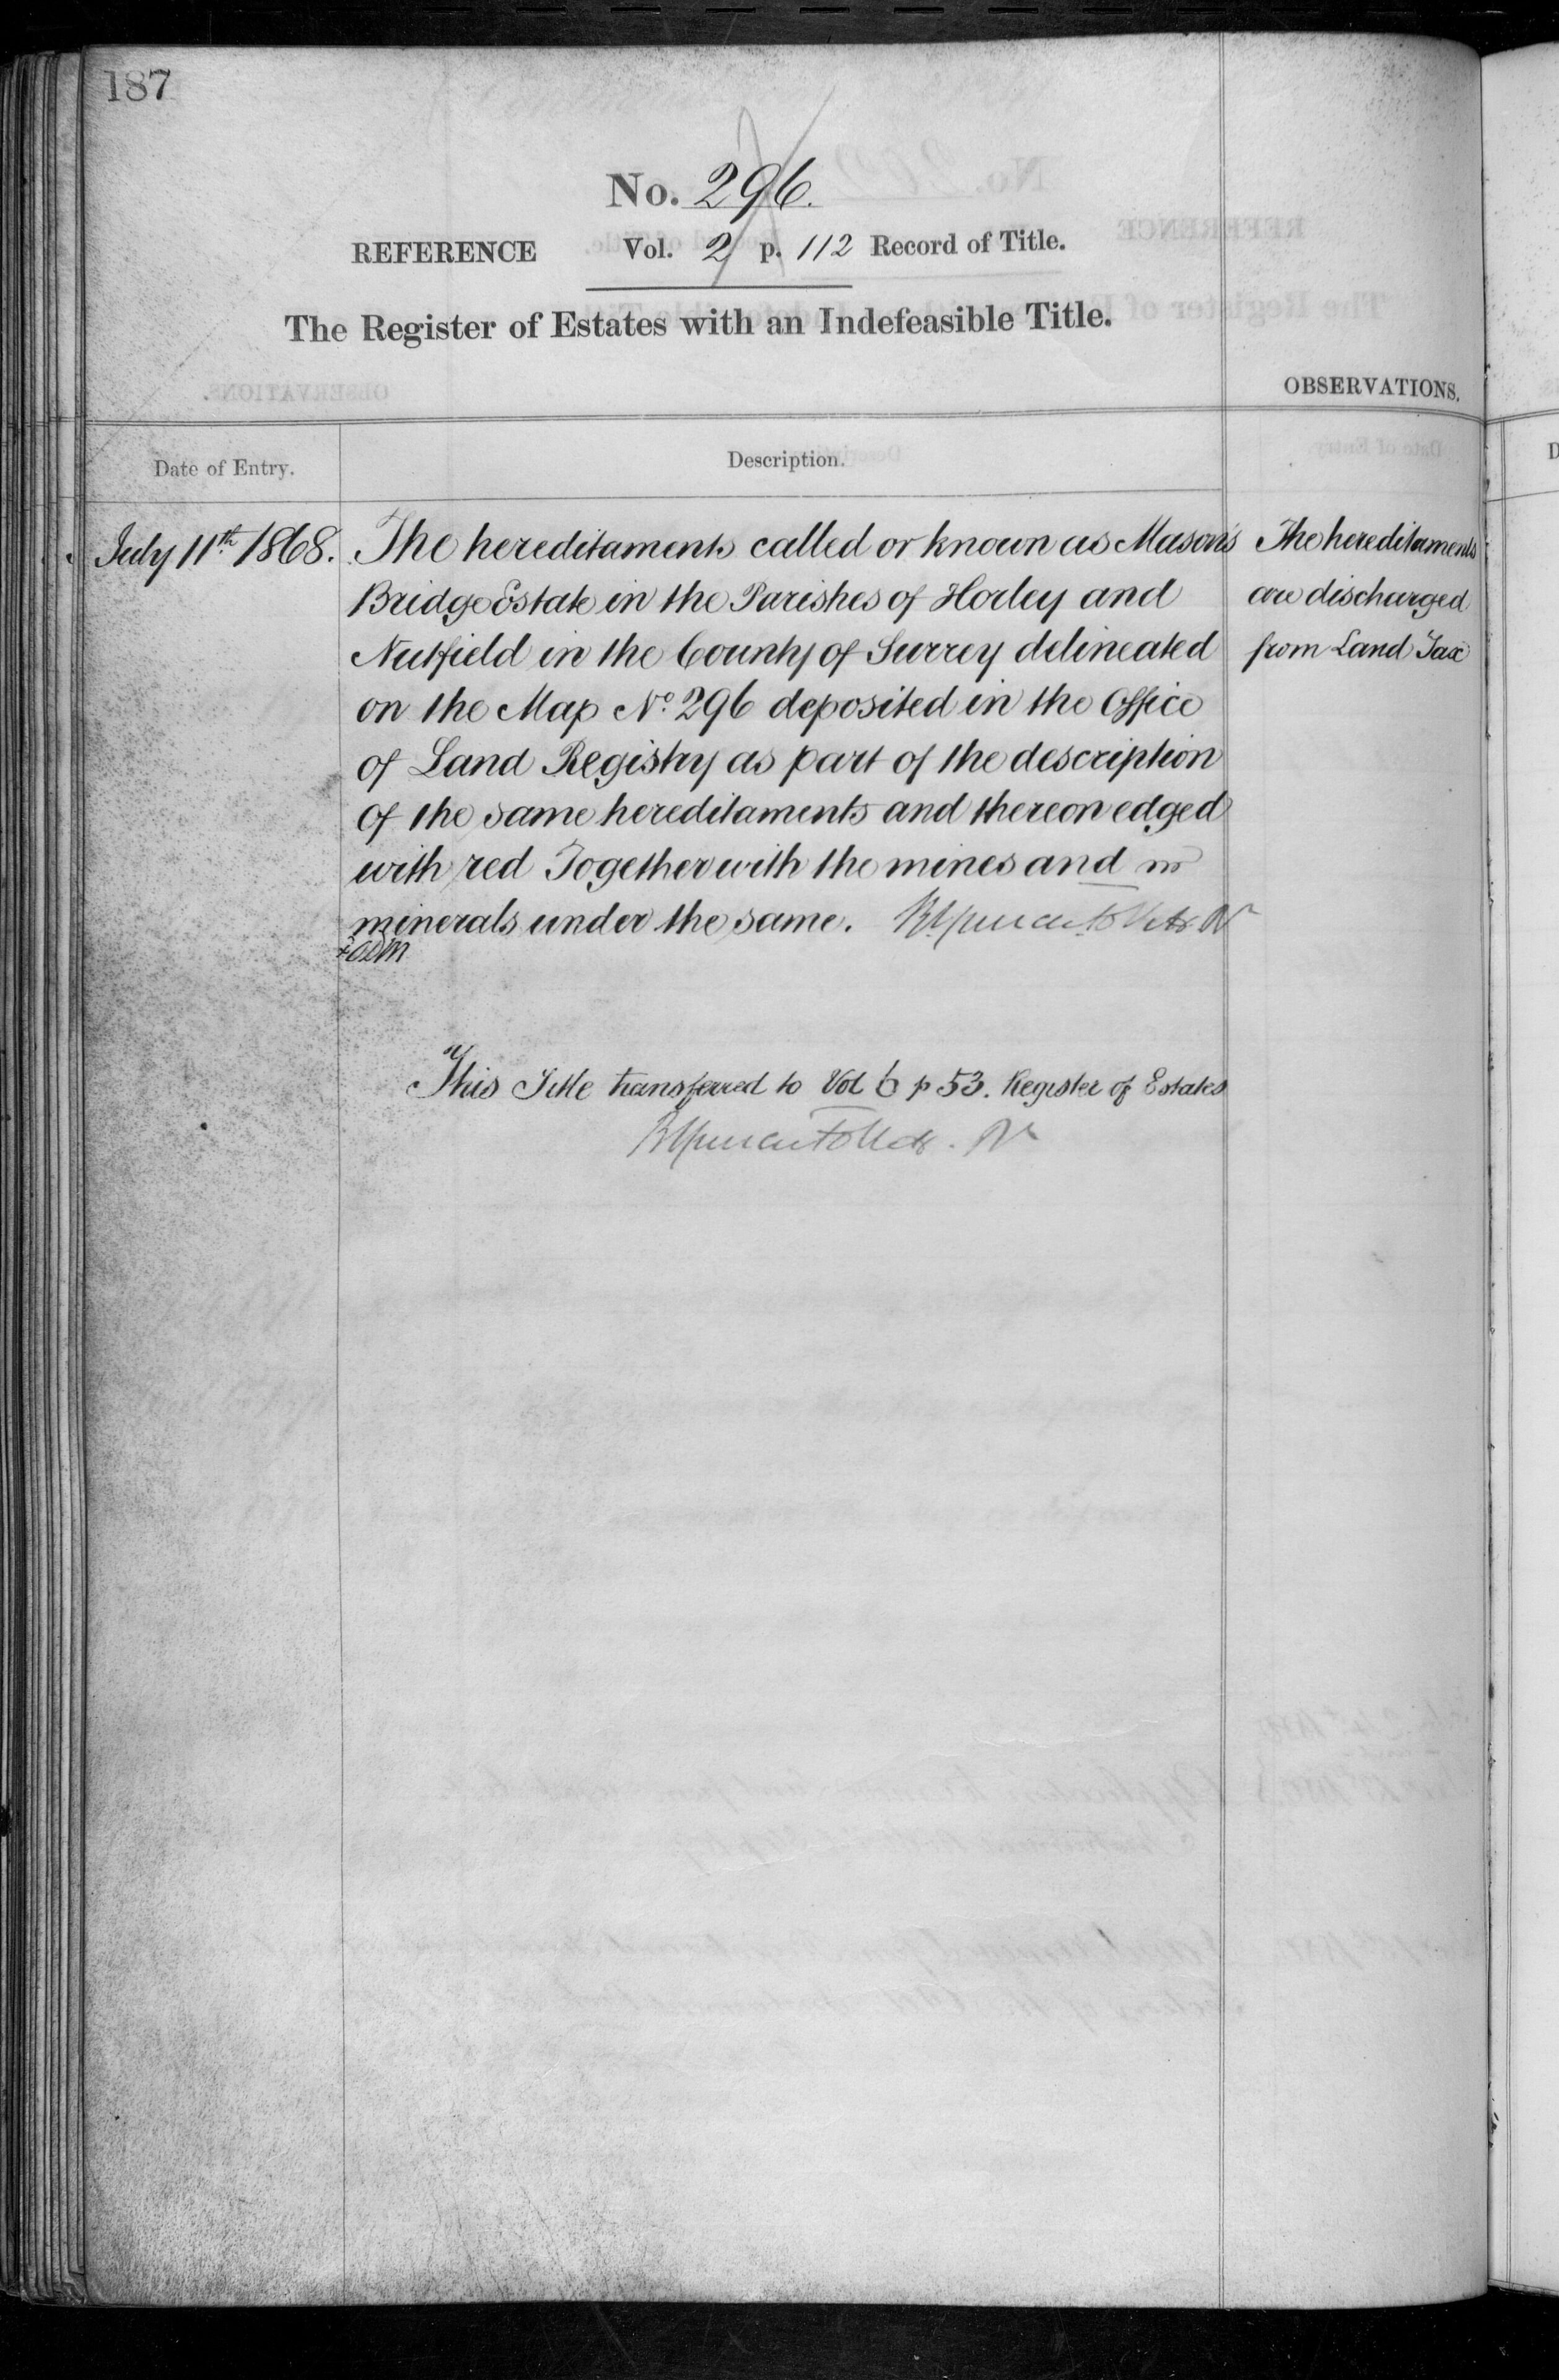 187
No. 296.
REFERENCE Vol. 2 p. 112 Record of Title.
The Register of Estates with an Indefeasible Title.
OBSERVATIONS.
Date of Entry. Description.
July 11th 1868. The hereditaments called or known as Mason's
Bridge Estate in the Parishes of Horley and
Nutfield in the County of Surrey delineated
on the Map No. 296 deposited in the Office
of Land Registry as part of the description
of the same hereditaments and thereon edged
with red Together with the mines and
minerals under the same.
The hereditaments
are discharged
from Land Tax
This Title transferred to Vol 6 p 53. Register of Estates